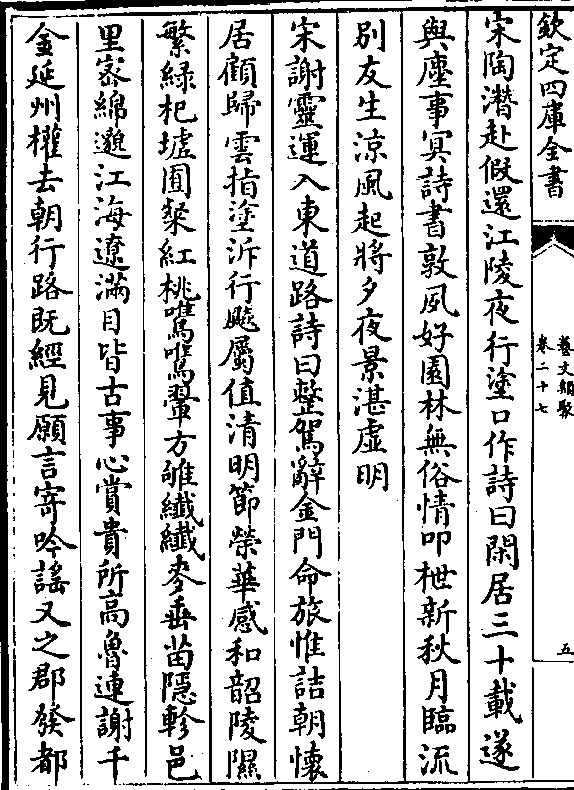 欽定四庫全書
藝文類聚
卷二十七
五
宋陶潛赴假還江陵夜行塗口作詩曰閑居三十載遂
與塵事冥詩書敦夙好園林無俗情叩枻新秋月臨流
別友生涼風起將夕夜景湛虛明
宋謝靈運入東道路詩曰整駕辭金門命旅惟詰朝懷
居顧歸雲指塗泝行飈屬值清明節榮華感和韶陵隰
繁緑杞墟囿粲紅桃鷕鷕翬方雊纖纖麥垂苗隱軫邑
里密綿邈江海遼滿目皆古事心賞貴所高魯連謝千
金延州權去朝行路既經見願言寄吟謠又之郡發都